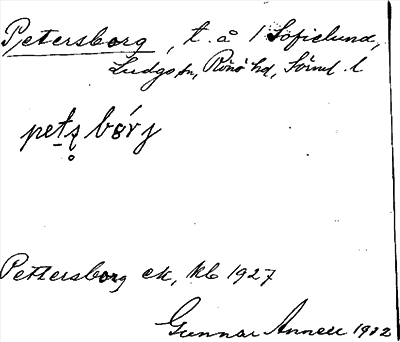 Petersborg, t. å 1 Sofielund,
Ludgo sn, Rönö hd, Sörml. l
Pettersborg ek, kb 1927
Gunnar Anneer 1932